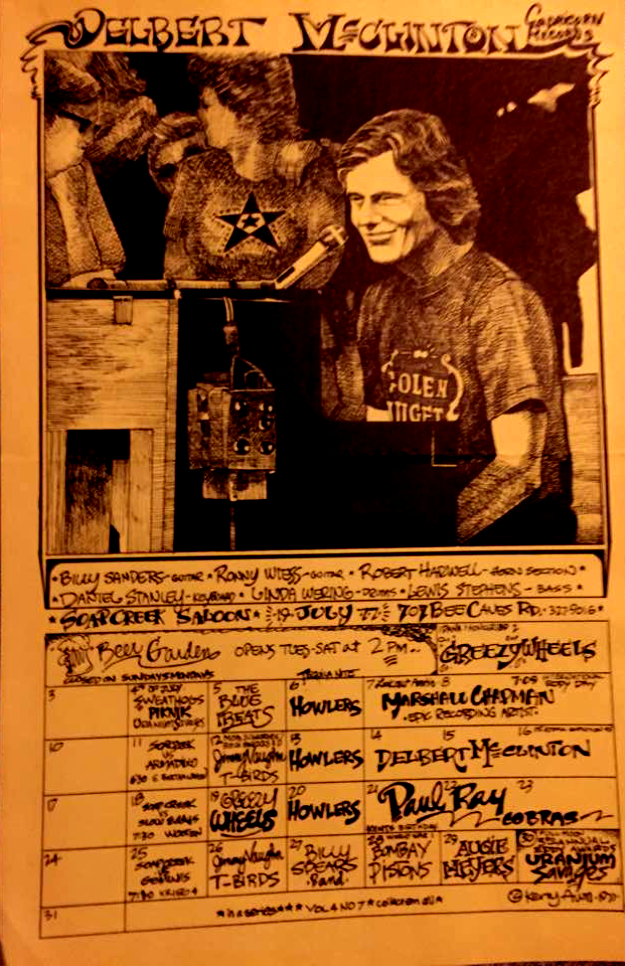 DELBERT McCLINTON CAPRICORN RECORDS
OLEN
NUGET
• BILLY SANDERS - GUITAR • RONNY WIESS - GUITAR • ROBERT HARWELL - HORN SECTION •
• DANIEL STANLEY - KEYBOARD • LINDA WERING - DRUMS • LEWIS STEPHENS - BASS •
* SOAP CREEK SALOON * 19 JULY 77 707 BEE CAVES RD. • 327-9016 *
Beer Garden OPENS TUES-SAT at 2 PM
CLOSED ON SUNDAYS MONDAYS
1 2
GREEZY WHEELS
3
4TH OF JULY SWEATHOGS PIKNIK URANIUM SAVAGES
5 THE BLUE BEATS
6 HOWLERS
7 8 9
MARSHALL CHAPMAN
• EPIC RECORDING ARTIST •
10
11 SOAPCREEK VS ARMADILLO
12 Jimmy Vaughn T-BIRDS
13 HOWLERS
14 15 16
DELBERT McCLINTON
17
18 SOAP CREEK VS 7:30
19 GREEZY WHEELS
20 HOWLERS
21 22 23
Paul Ray COBRAS
24
25 SOAPCREEK VS 7:30
26 Jimmy Vaughn T-BIRDS
27 BILLY SPEARS Band
28 BOMBAY PISTONS
29 AUGIE MEYERS
30 URANIUM Savages
31
* in a series * * * VOL 4 NO 7 * collect em all *
© Kerry Awn 1977